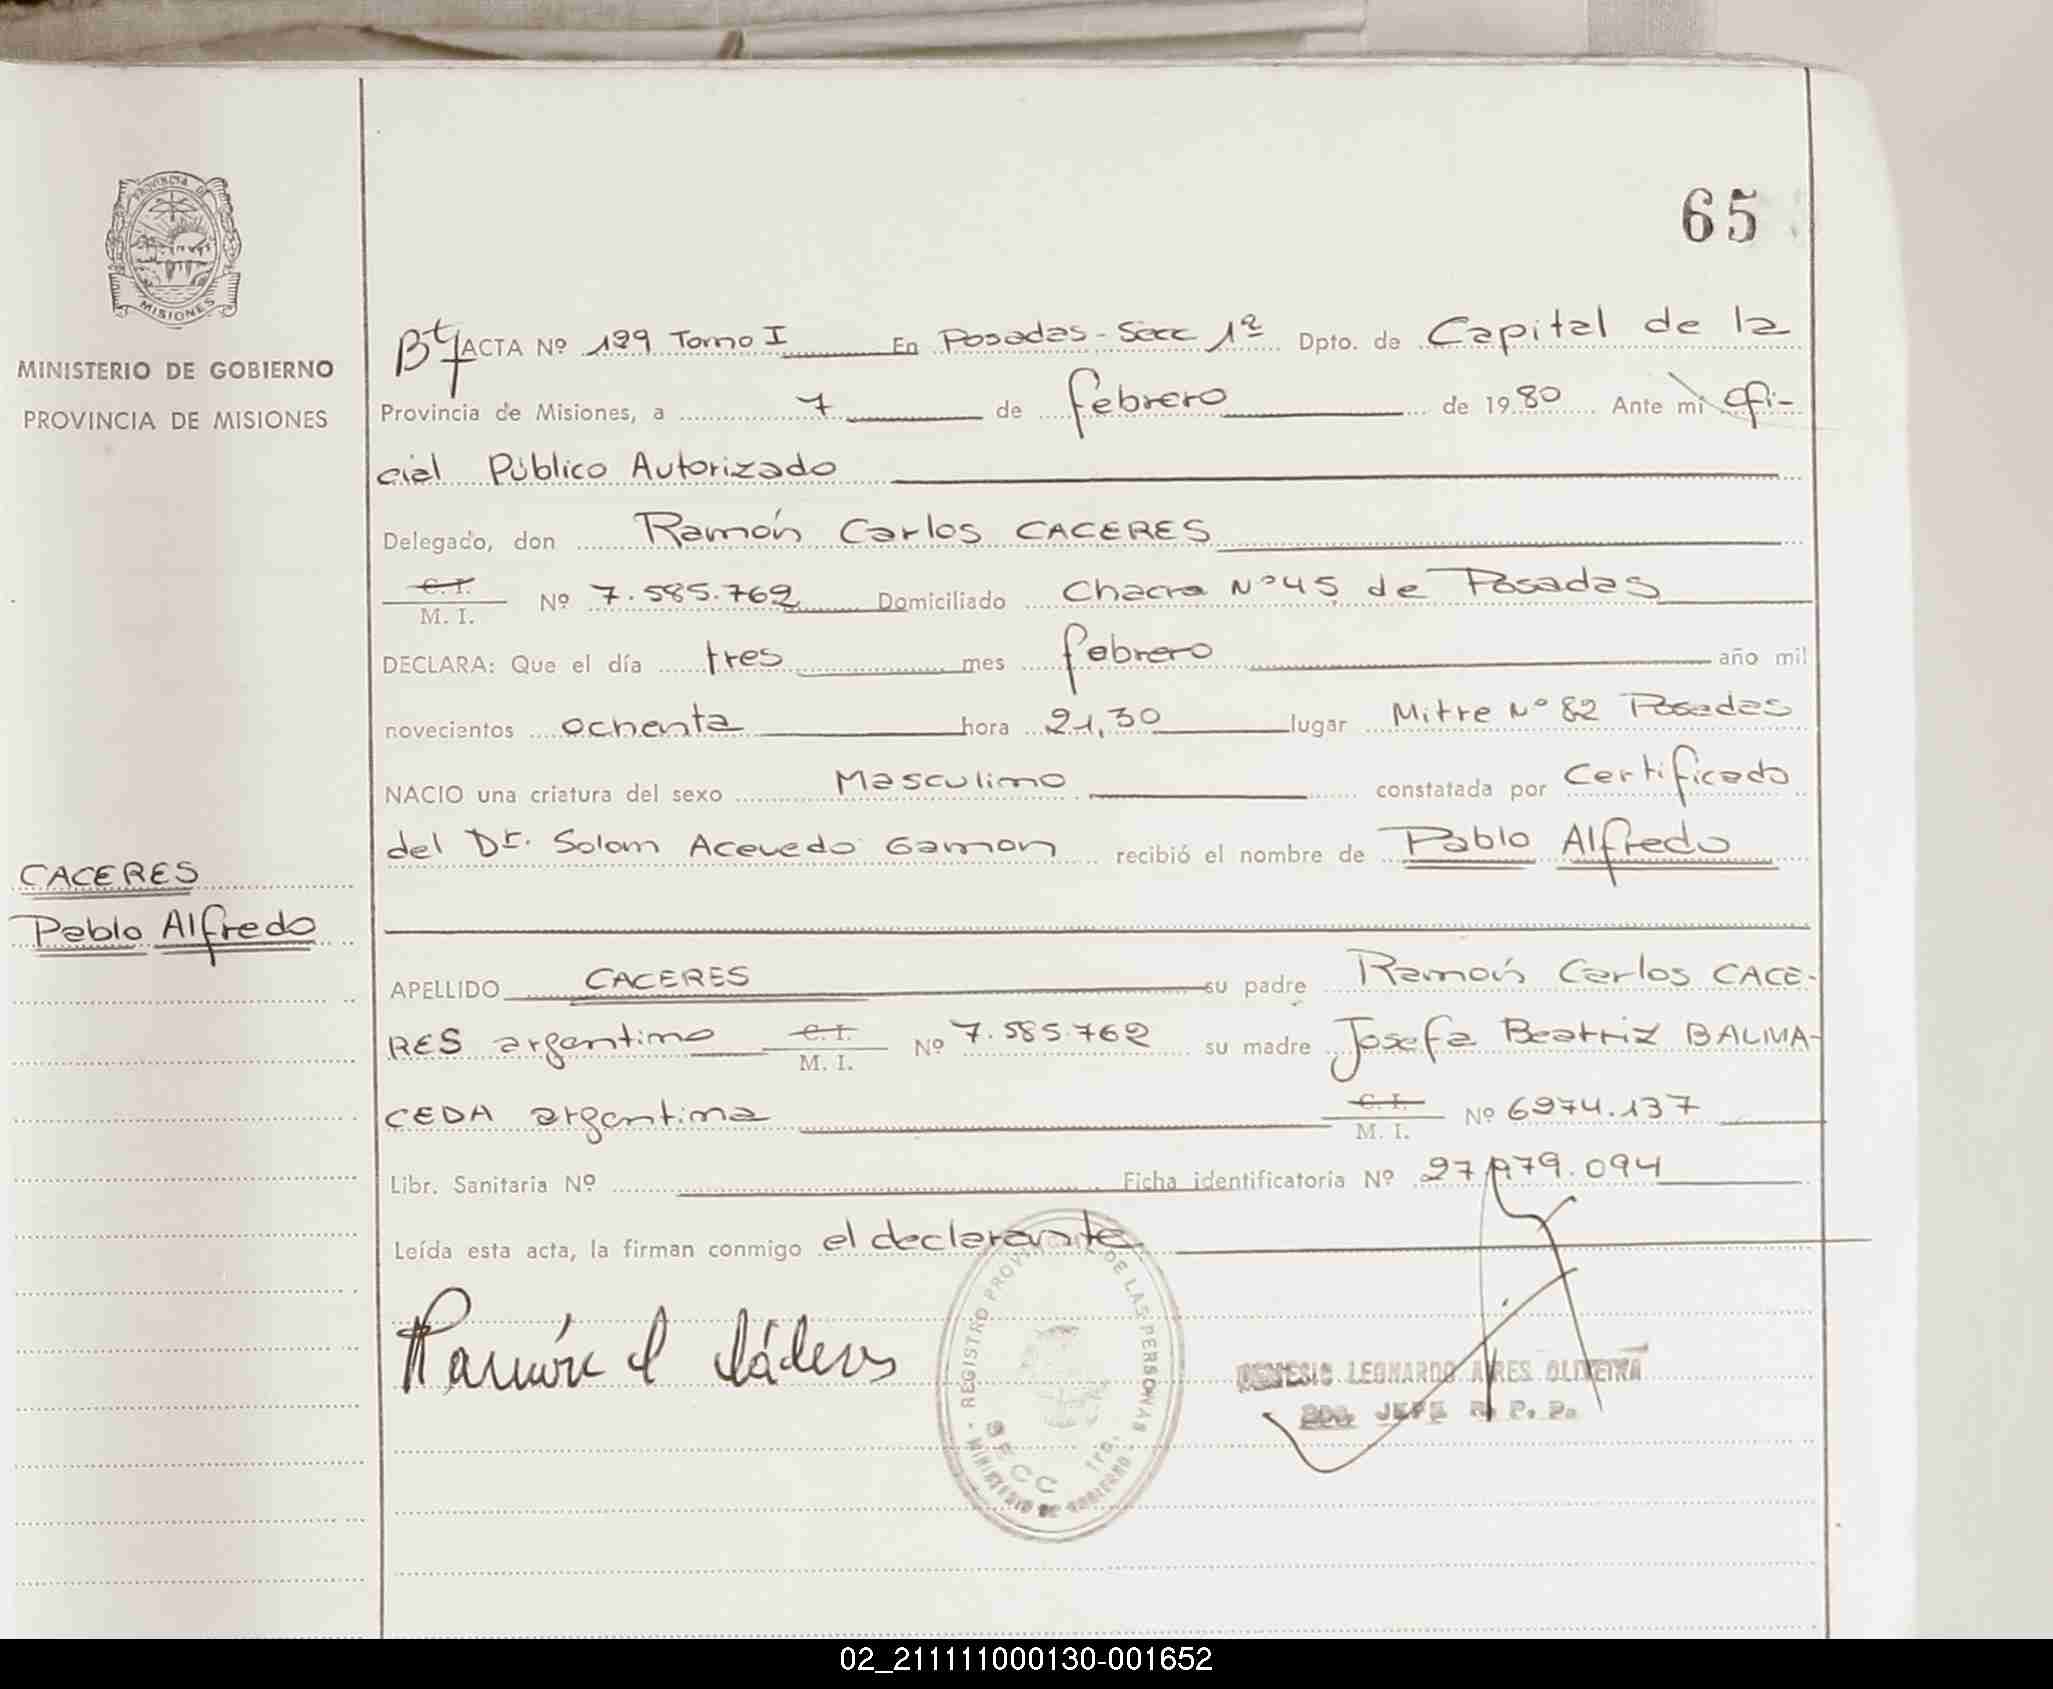 65
PROVINCIA DE
MISIONES
MINISTERIO DE GOBIERNO
PROVINCIA DE MISIONES
ACTA Nº 199 Tomo I En Posadas - Secc 1ª Dpto. de Capital de la
Provincia de Misiones, a 7 de febrero de 1980 Ante mi Ofi-
cial Público Autorizado
Delegado, don Ramón Carlos CACERES
C. I.
M. I. Nº 7.585.762 Domiciliado Chacra Nº 45 de Posadas
DECLARA: Que el día tres mes febrero año mil
novecientos ochenta hora 21,30 lugar Mitre Nº 82 Posadas
NACIO una criatura del sexo Masculino constatada por Certificado
del Dr. Solom Acevedo Gamon recibió el nombre de Pablo Alfredo
CACERES
Pablo Alfredo
APELLIDO CACERES su padre Ramón Carlos CACE-
RES argentino C. I. M. I. Nº 7.585.762 su madre Josefa Beatriz BALMA-
CEDA argentina C. I. M. I. Nº 6974.137
Libr. Sanitaria Nº Ficha identificatoria Nº 27.979.094
Leída esta acta, la firman conmigo el declarante
Ramón C Cáceres
REGISTRO PROVINCIAL DE LAS PERSONAS
MINISTERIO DE GOBIERNO
SECC 1ra.
LEONARDO AIRES OLIVEIRA
2do. JEFE R. P. P.
02_211111000130-001652